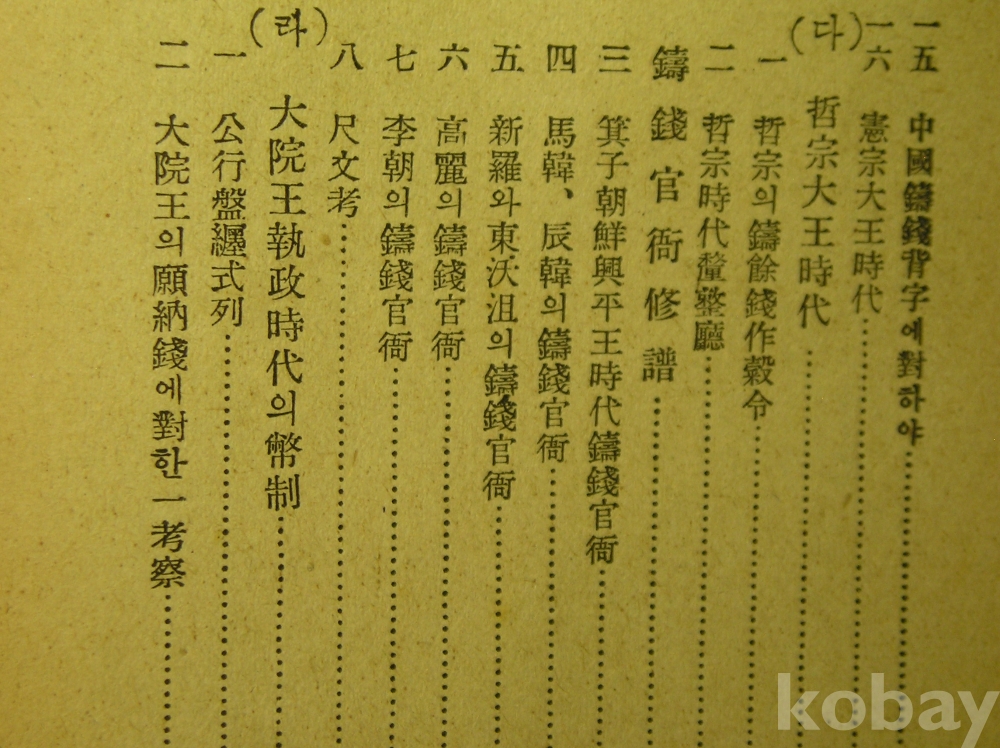 一五 中國鑄錢背字에對하야
一六 憲宗大王時代
(다) 哲宗大王時代
一 哲宗의鑄餘錢作穀令
二 哲宗時代釐整廳
鑄錢官衙修譜
三 箕子朝鮮興平王時代鑄錢官衙
四 馬韓、辰韓의鑄錢官衙
五 新羅와東沃沮의鑄錢官衙
六 高麗의鑄錢官衙
七 李朝의鑄錢官衙
八 尺文考
(라) 大院王執政時代의幣制
一 公行盤纒式列
二 大院王의願納錢에對한一考察
kobay